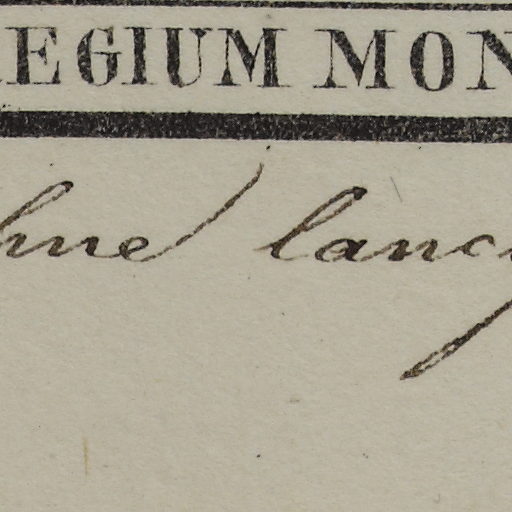 REGIUM MON
hne lanc